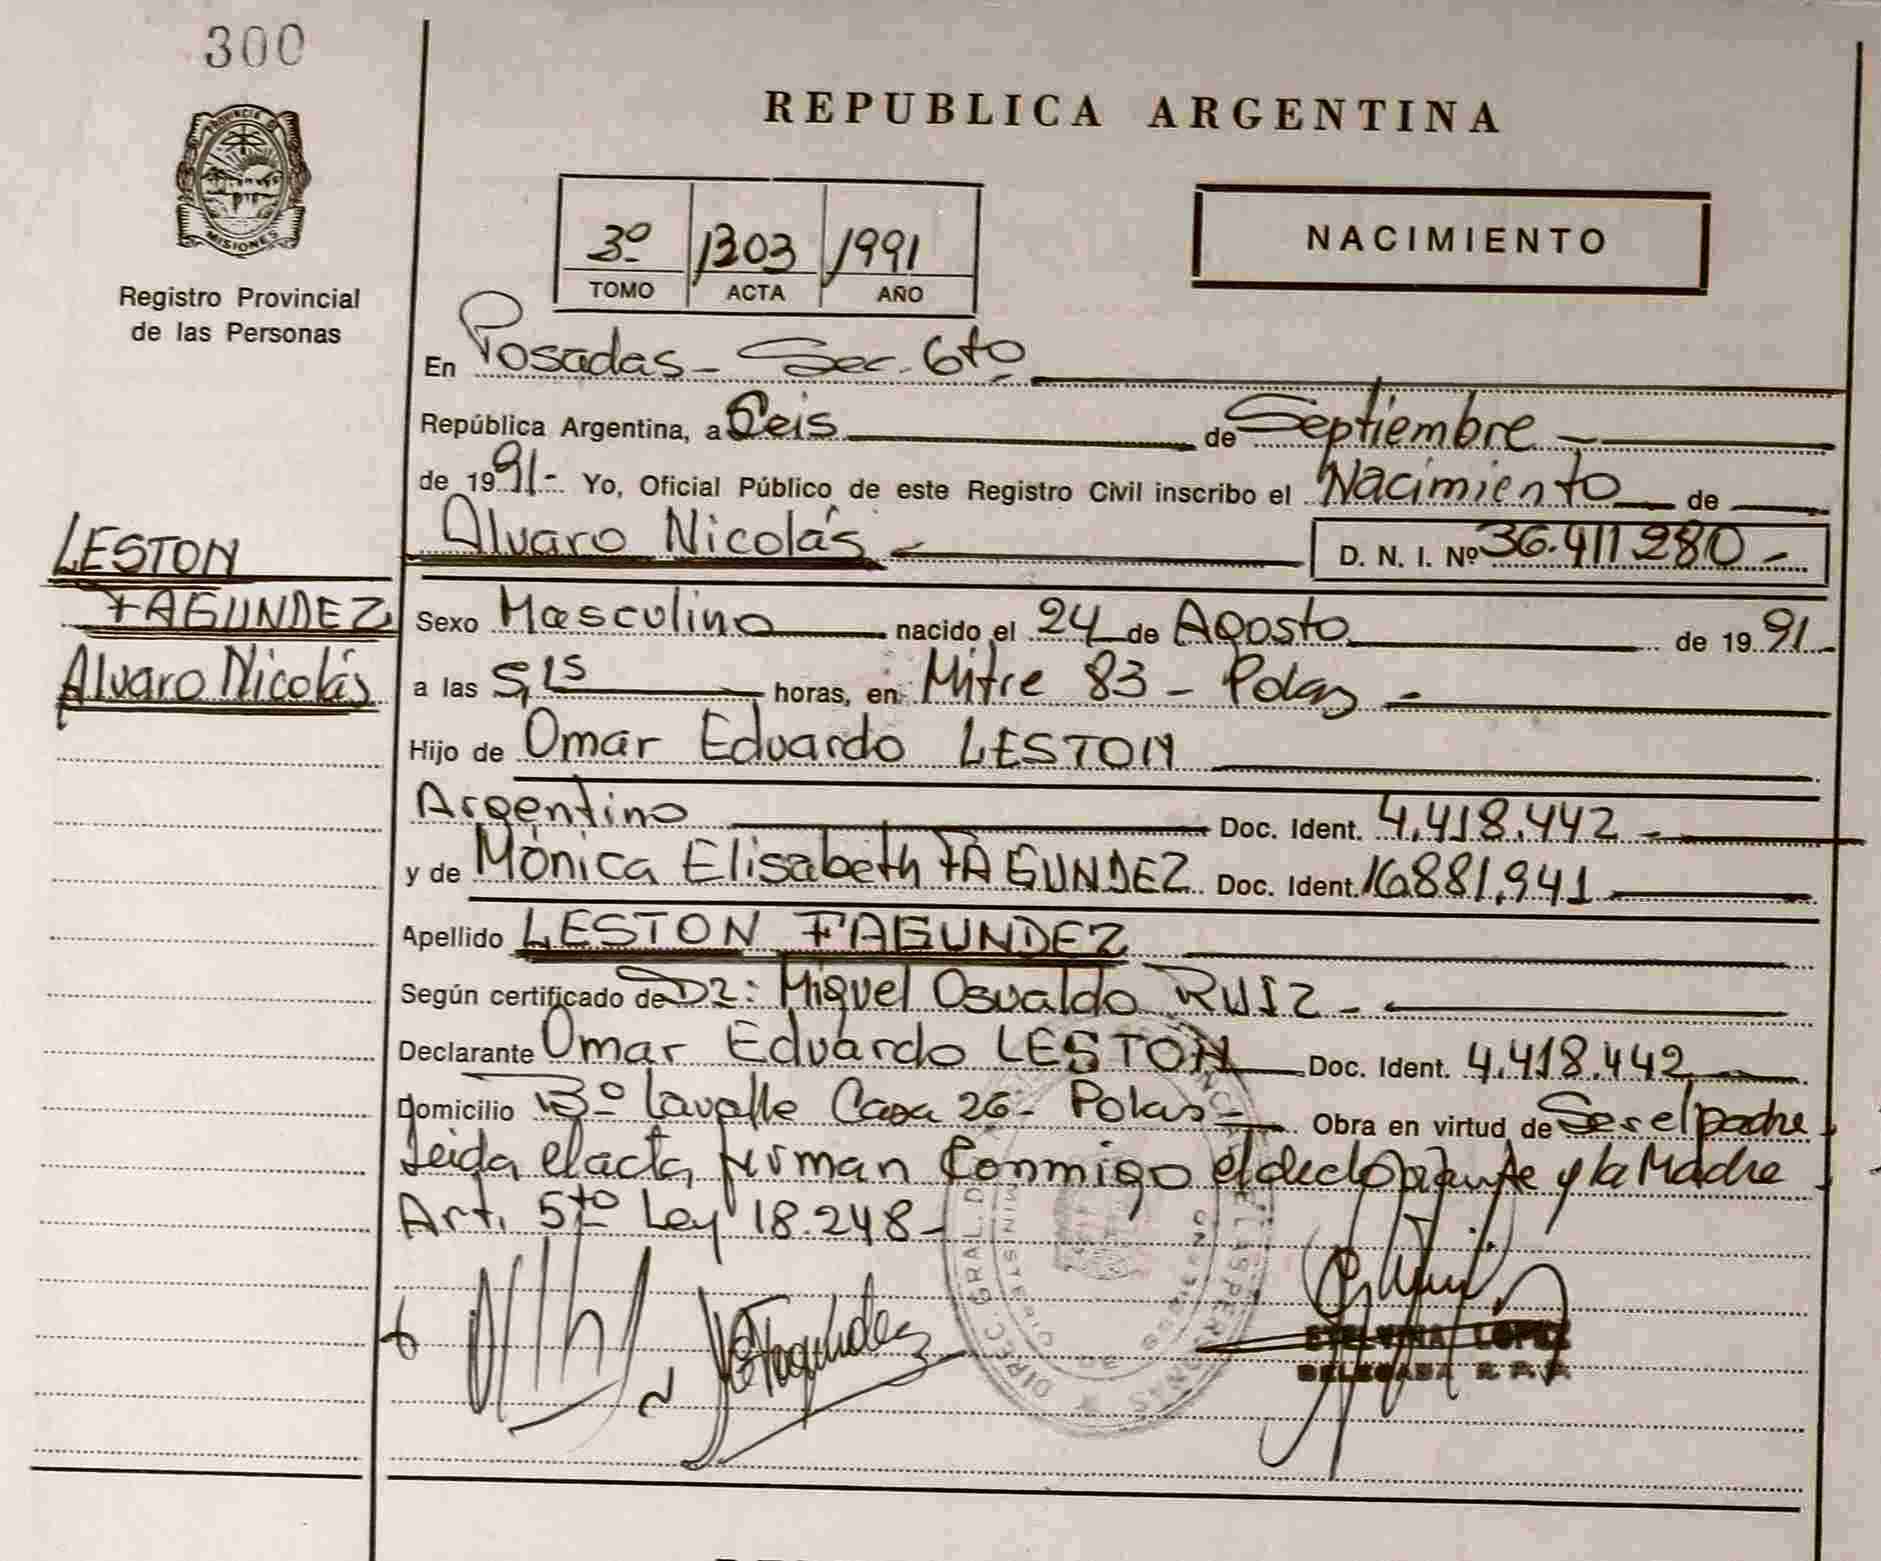 300
PROVINCIA DE
MISIONES
Registro Provincial
de las Personas
REPUBLICA ARGENTINA
NACIMIENTO
3º 1303 1991
TOMO ACTA AÑO
En Posadas - Sec. 6to
República Argentina, a Seis de Septiembre
de 1991- Yo, Oficial Público de este Registro Civil inscribo el Nacimiento de
Alvaro Nicolás D. N. I. Nº 36.411.280-
LESTON
FAGUNDEZ
Alvaro Nicolás
Sexo Masculino nacido el 24 de Agosto de 1991-
a las 5,15 horas, en Mitre 83 - Pdas -
Hijo de Omar Eduardo LESTON
Argentino Doc. Ident. 4.418.442-
y de Mónica Elisabeth FAGUNDEZ Doc. Ident. 16.881.941
Apellido LESTON FAGUNDEZ
Según certificado de Dr: Miguel Osvaldo RUIZ -
Declarante Omar Eduardo LESTON Doc. Ident. 4.418.442
Domicilio Bº Lavalle Casa 26 - Pdas - Obra en virtud de Ser el padre
Leida el acta, firman Conmigo el declarante y la Madre
Art. 5to Ley 18.248-
Fagundez
EVELVINA LOPEZ
DELEGADA R. P. P.
DIREC. GRAL. D